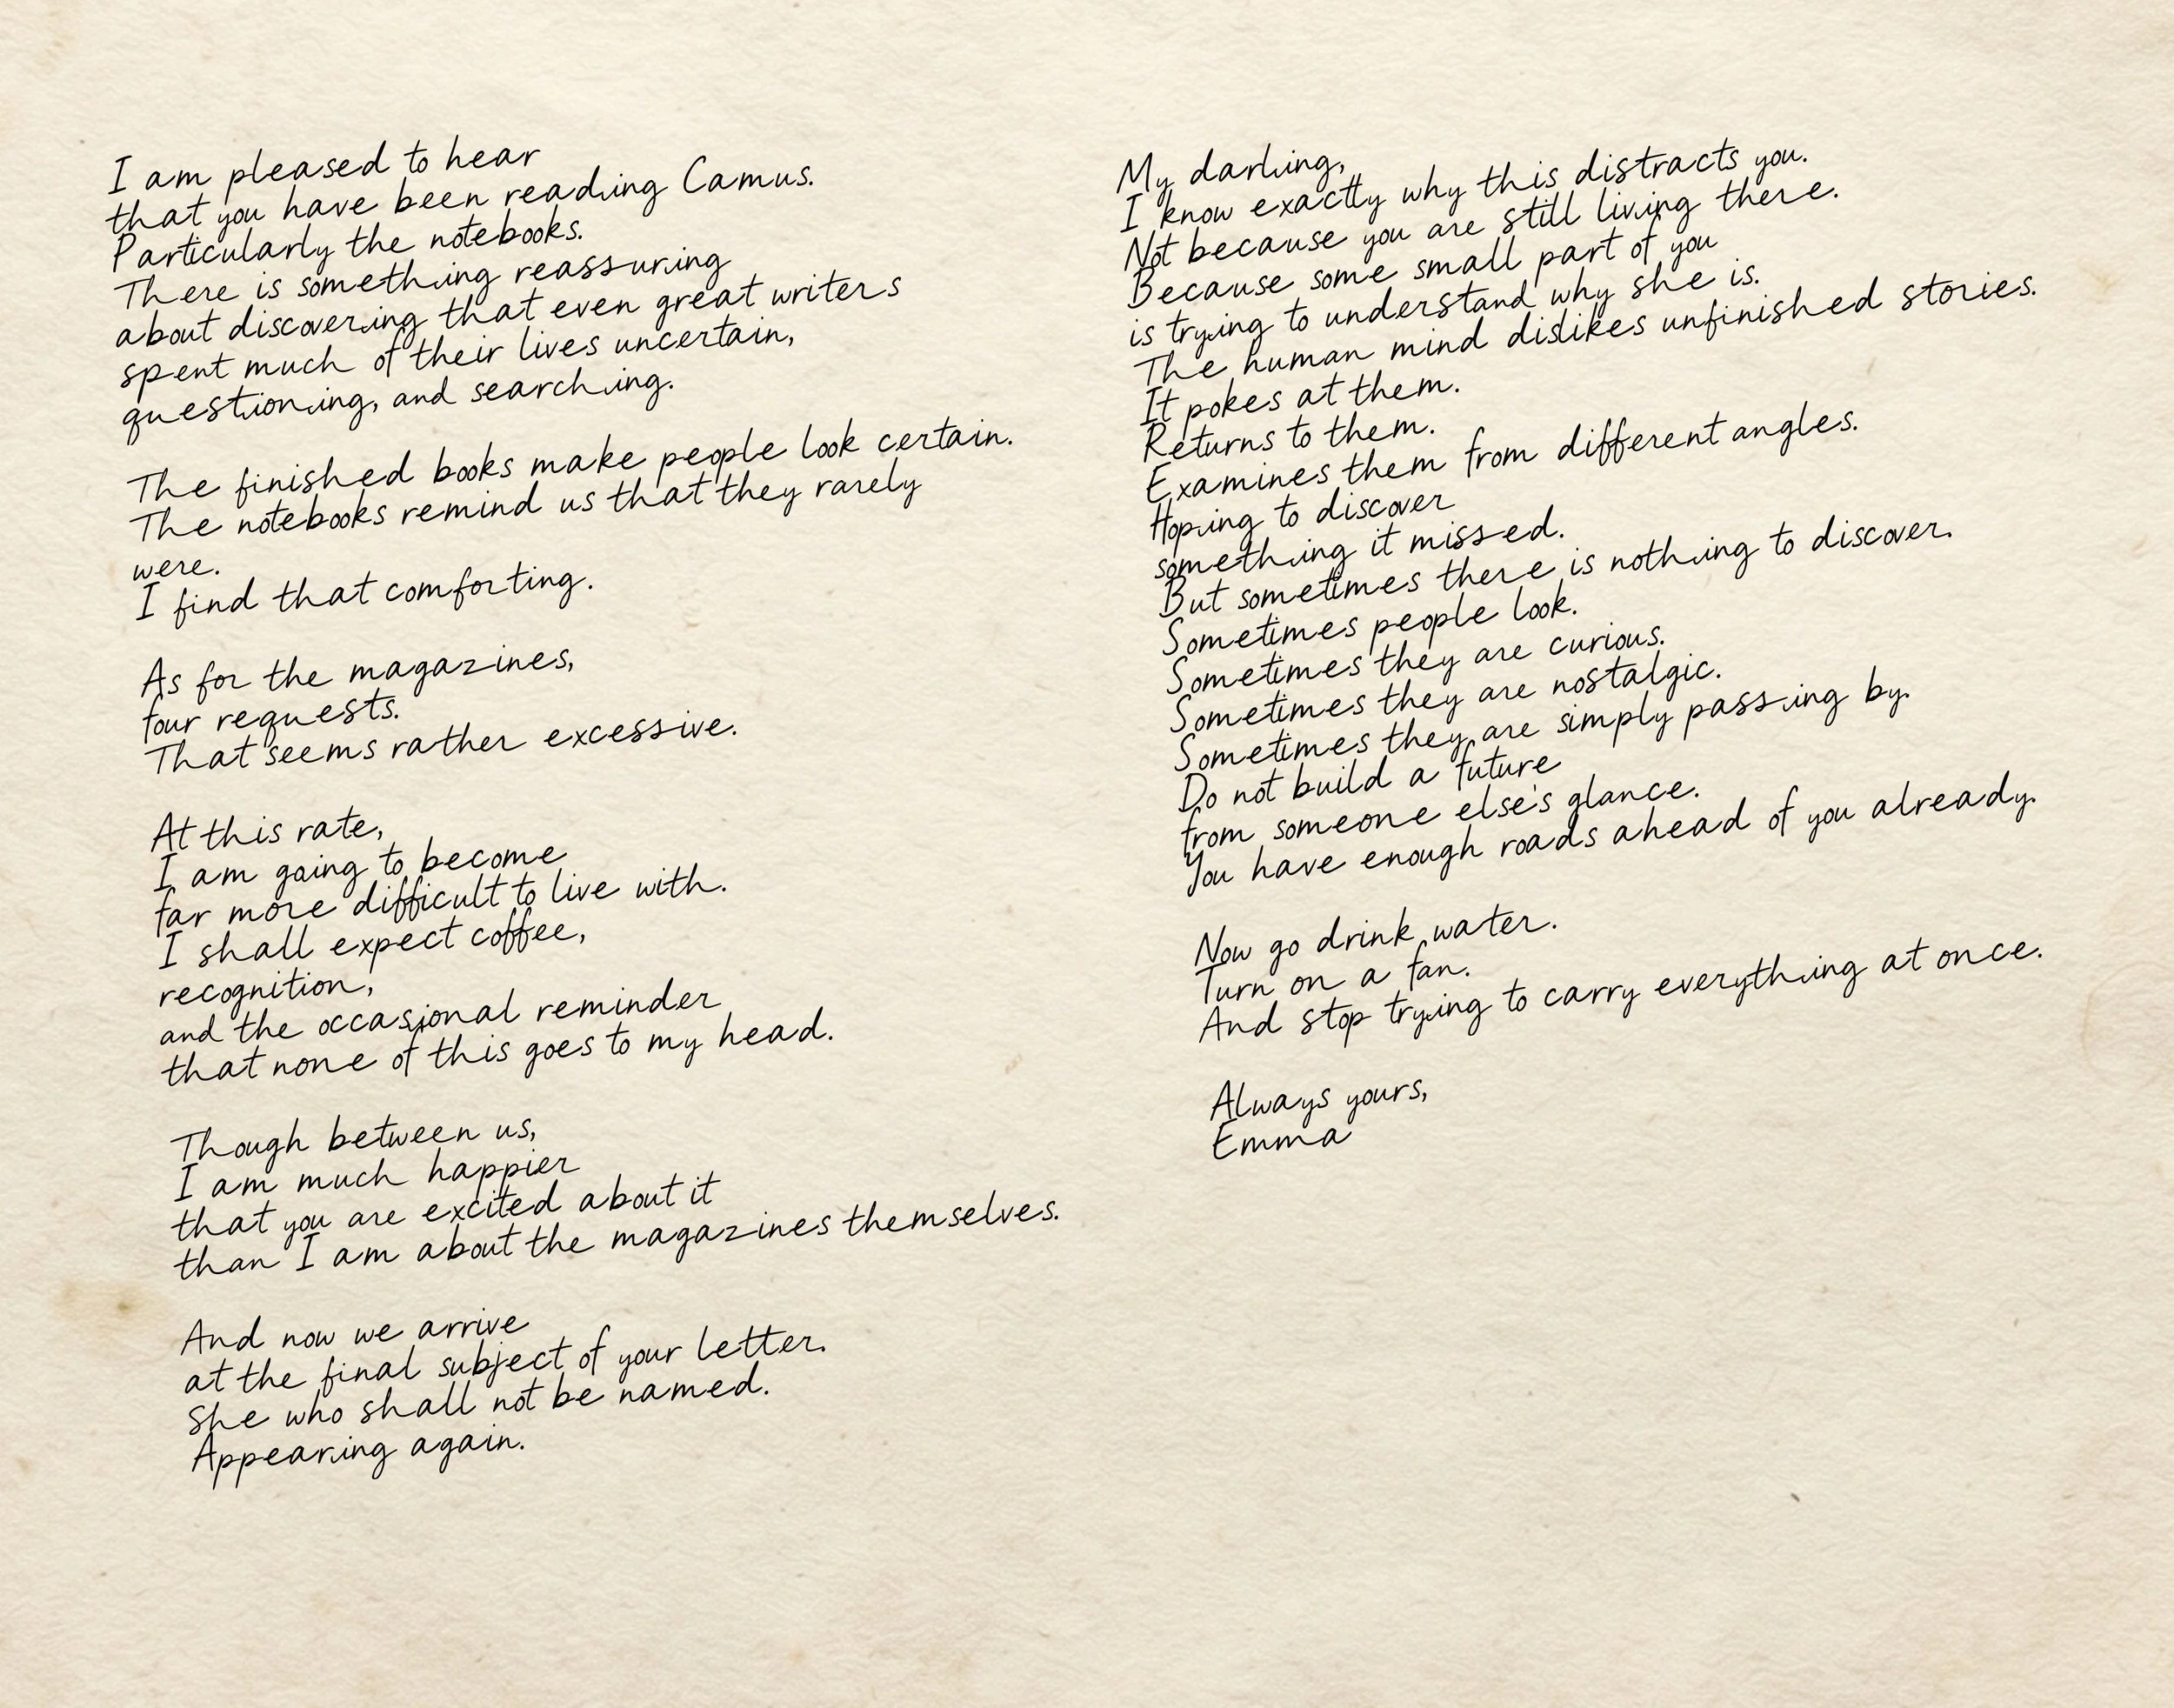 I am pleased to hear
that you have been reading Camus.
Particularly the notebooks.
There is something reassuring
about discovering that even great writers
spent much of their lives uncertain,
questioning, and searching.
The finished books make people look certain.
The notebooks remind us that they rarely
were.
I find that comforting.
As for the magazines,
four requests.
That seems rather excessive.
At this rate,
I am going to become
far more difficult to live with.
I shall expect coffee,
recognition,
and the occasional reminder
that none of this goes to my head.
Though between us,
I am much happier
that you are excited about it
than I am about the magazines themselves.
And now we arrive
at the final subject of your letter.
She who shall not be named.
Appearing again.
My darling,
I know exactly why this distracts you.
Not because you are still living there.
Because some small part of you
is trying to understand why she is.
The human mind dislikes unfinished stories.
It pokes at them.
Returns to them.
Examines them from different angles.
Hoping to discover
something it missed.
But sometimes there is nothing to discover.
Sometimes people look.
Sometimes they are curious.
Sometimes they are nostalgic.
Sometimes they are simply passing by.
Do not build a future
from someone else's glance.
You have enough roads ahead of you already.
Now go drink water.
Turn on a fan.
And stop trying to carry everything at once.
Always yours,
Emma